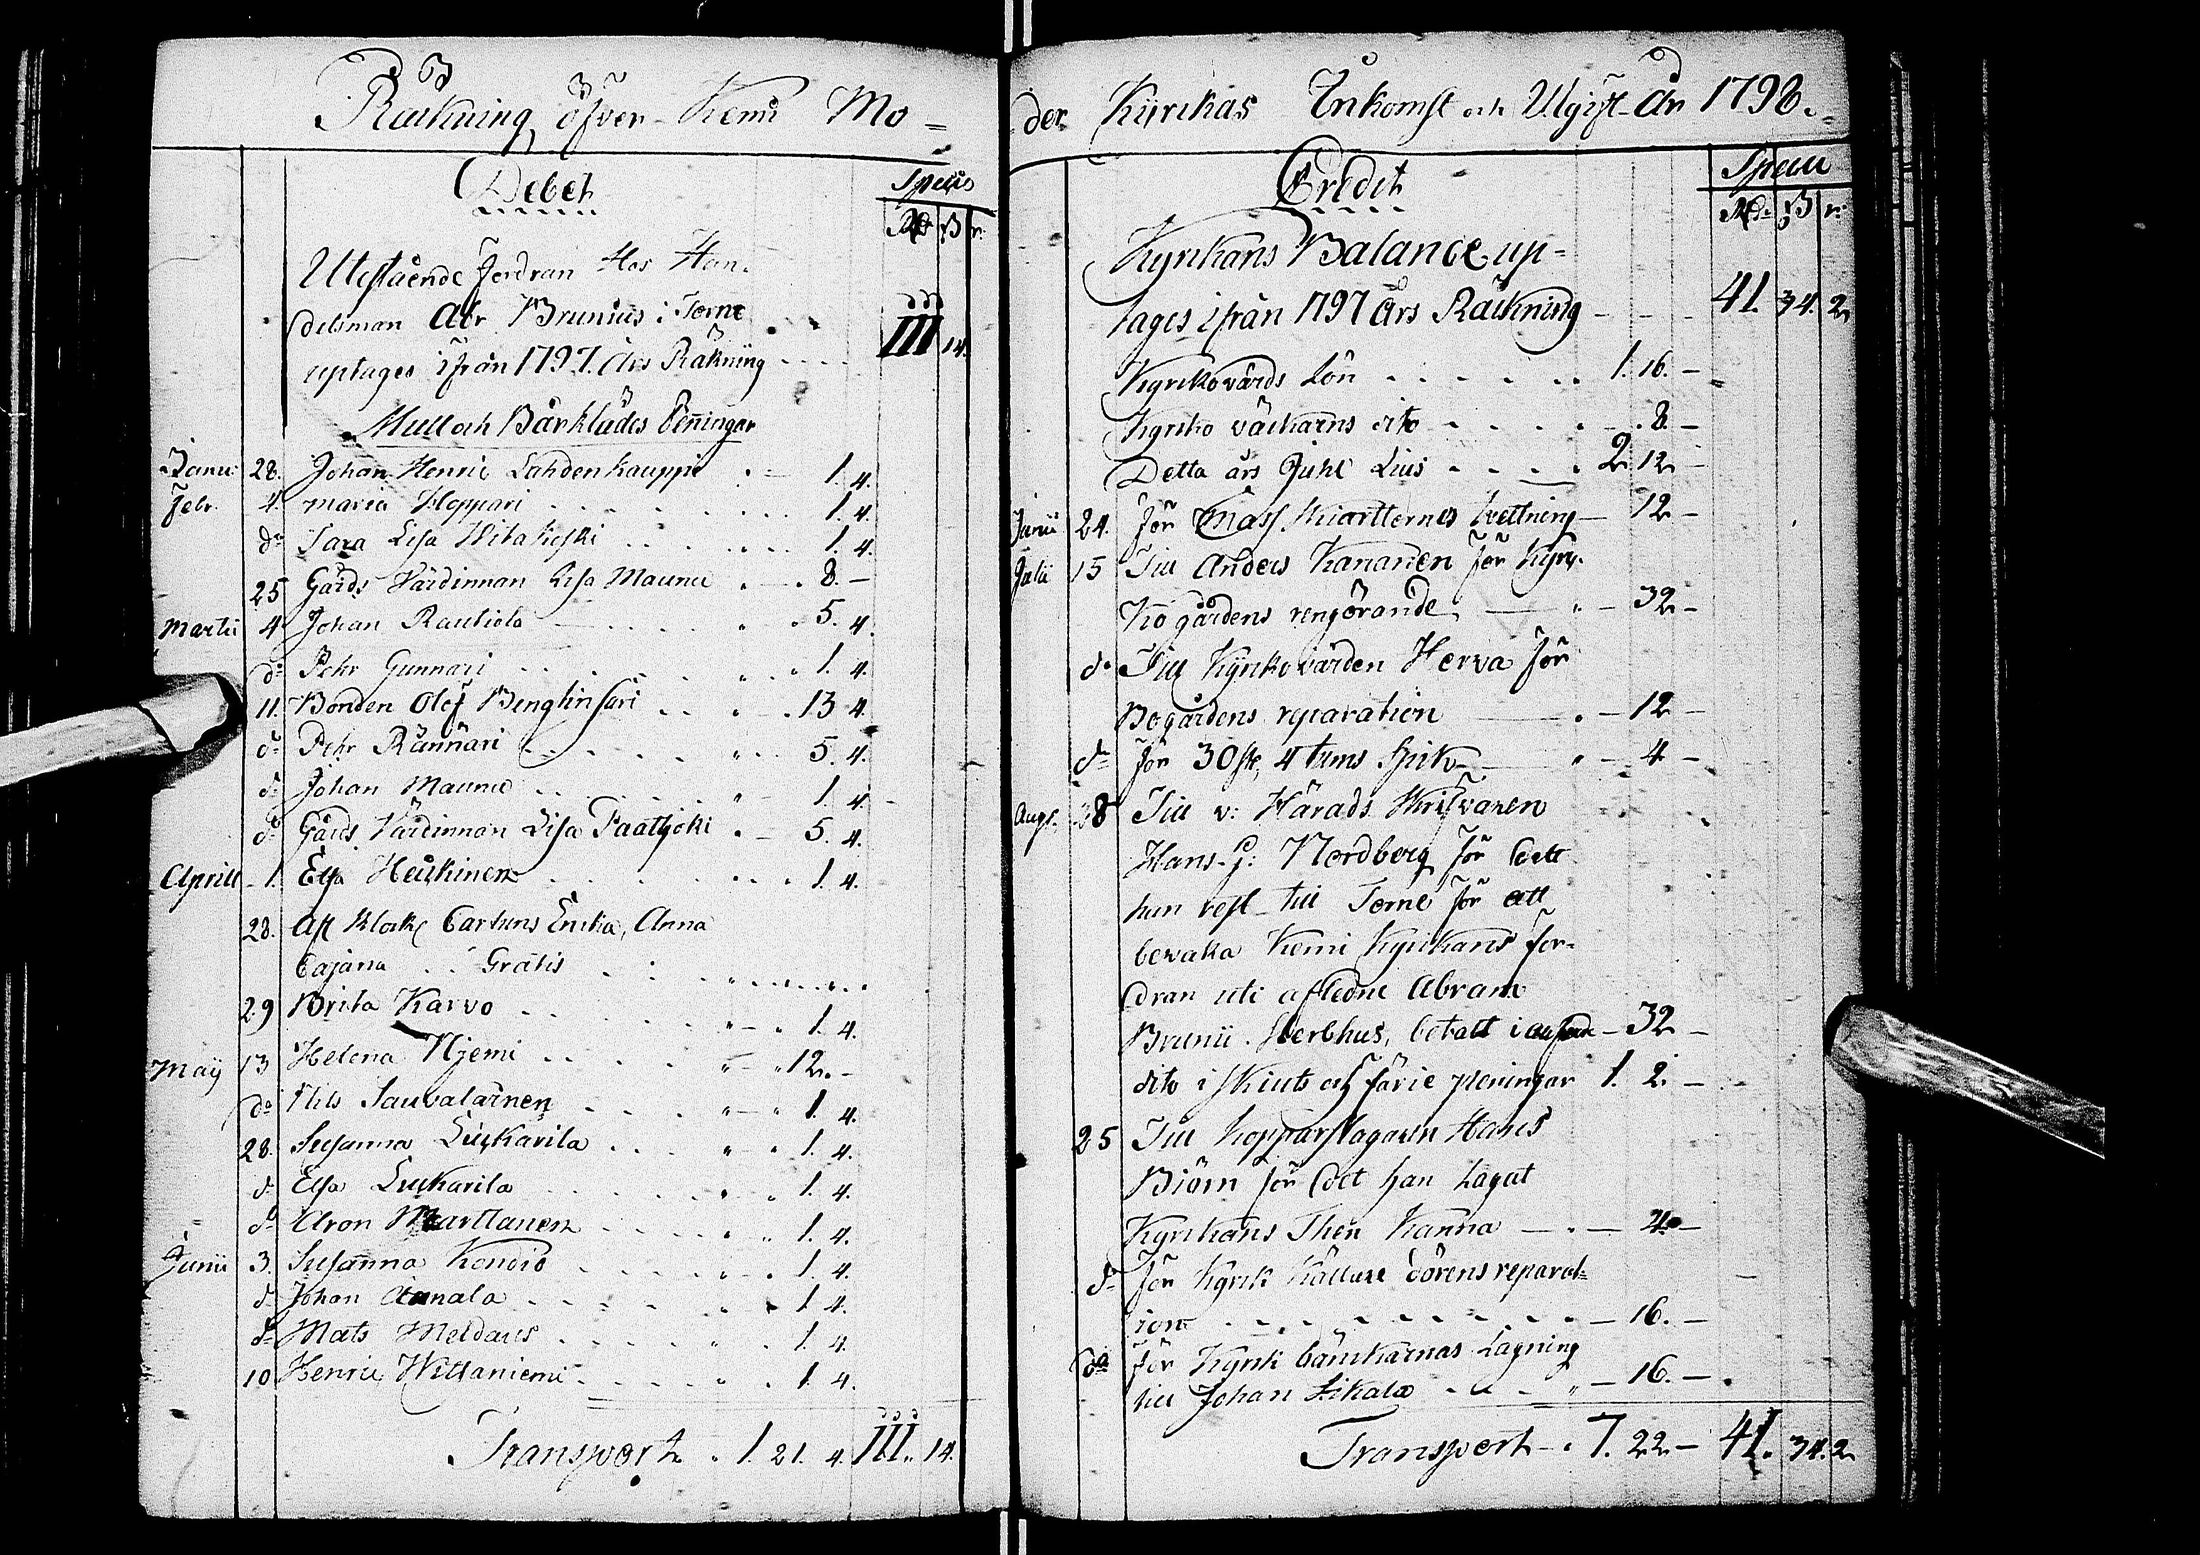 Räikning öfver Kemi Mo=
Debet
Specis
Rd ß r:
Utestående fordran Hos Han-
delsman Abr Brunius i Torne
uptages ifrån 1797. Års Räkning - - - III 14.
Mull och Bårklädes Penningar
Janu: 28. Johan Henric Lahdenkauppi . - 1. 4.
Febr. 4. maria Hoppari . . . . 1. 4.
do Sara Lisa . . . . 1. 4.
25 Gårds Värdinnan Lisa Maunu . - . 8. -
Martii 4. Johan Rautiola . . 5. 4.
do Pehr Gunnari . . . . 1. 4.
11. Bonden Olof . . . 13 4.
do Pehr Rännäri . . . . 5. 4.
do Johan Maunu . . . . 1. 4.
do Gårds Värdinnan Lisa Paatijoki . - 5. 4.
Aprill 1. Elsa Heiskinen . . . . 1. 4.
28. Afl Klock Carlens Enka, Anna
Cajana . . Gratis . . . .
29 Brita Karvo . . . . 1. 4.
Maij 13 Helena Njemi . . . . 12. -
do Nils Sauvalainen . . . . 1. 4.
28. Susanna Liuskarila . . . 1. 4.
do Elsa Liuskarila . . . . 1. 4.
do Aron Marttanen . . . . 1. 4.
Junii 3. Susanna Kondio . . . . 1. 4.
do Johan Annala . . . . 1. 4.
do Mats Meldaus . . . 1. 4.
10 Henric Wittaniemi . . . . 1. 4.
Transport . 1. 21. 4. III. 14.
der Kyrckas Inkomst och Utgift År 1798.
Credit
Specie
Rdr ß r:
Kyrkans Balance up=
tages ifrån 1797 Års Räikning - - - 41. 34. 2
Kyrckovärds Lön . . . . . 1. 16. -
Kyrcko väcktarns dito . . . . - . 8. -
Detta års Juhl Lius . . . . 2. 12 -
Junii 24. för Mass skiortternes tvettning - 12 -
Julii 15 Till Anders Kananen för Kyrc-
ko gårdens rengörande, - " - 32 -
do Till Kyrckovärden Herva för
Bogårdens reparation - . - 12 -
do för 30 st, 4 tums Spik - " - 4 -
Augs. 28 Till v: Härads Skrifvaren
Hans J: Nordberg för det
han rest till Torne för att
bevaka Kemi Kyrkans for-
dran uti afledne Abram
Brunii Sterbhus, betalt - 32 -
dito i Skiuts och färie peningar 1. 2. -
25 Till kopparslagaren Hans
Biörn för det han lagat
Kyrckans Then Kanna - . - 4 -
do för Kyrck Källare dörens reparat-
ion . . . . - 16. -
do för Kyrck bänckarnas Lagning
till Johan Sikala . . . - 16. - .
Transport - . 7. 22 - 41. 34. 2